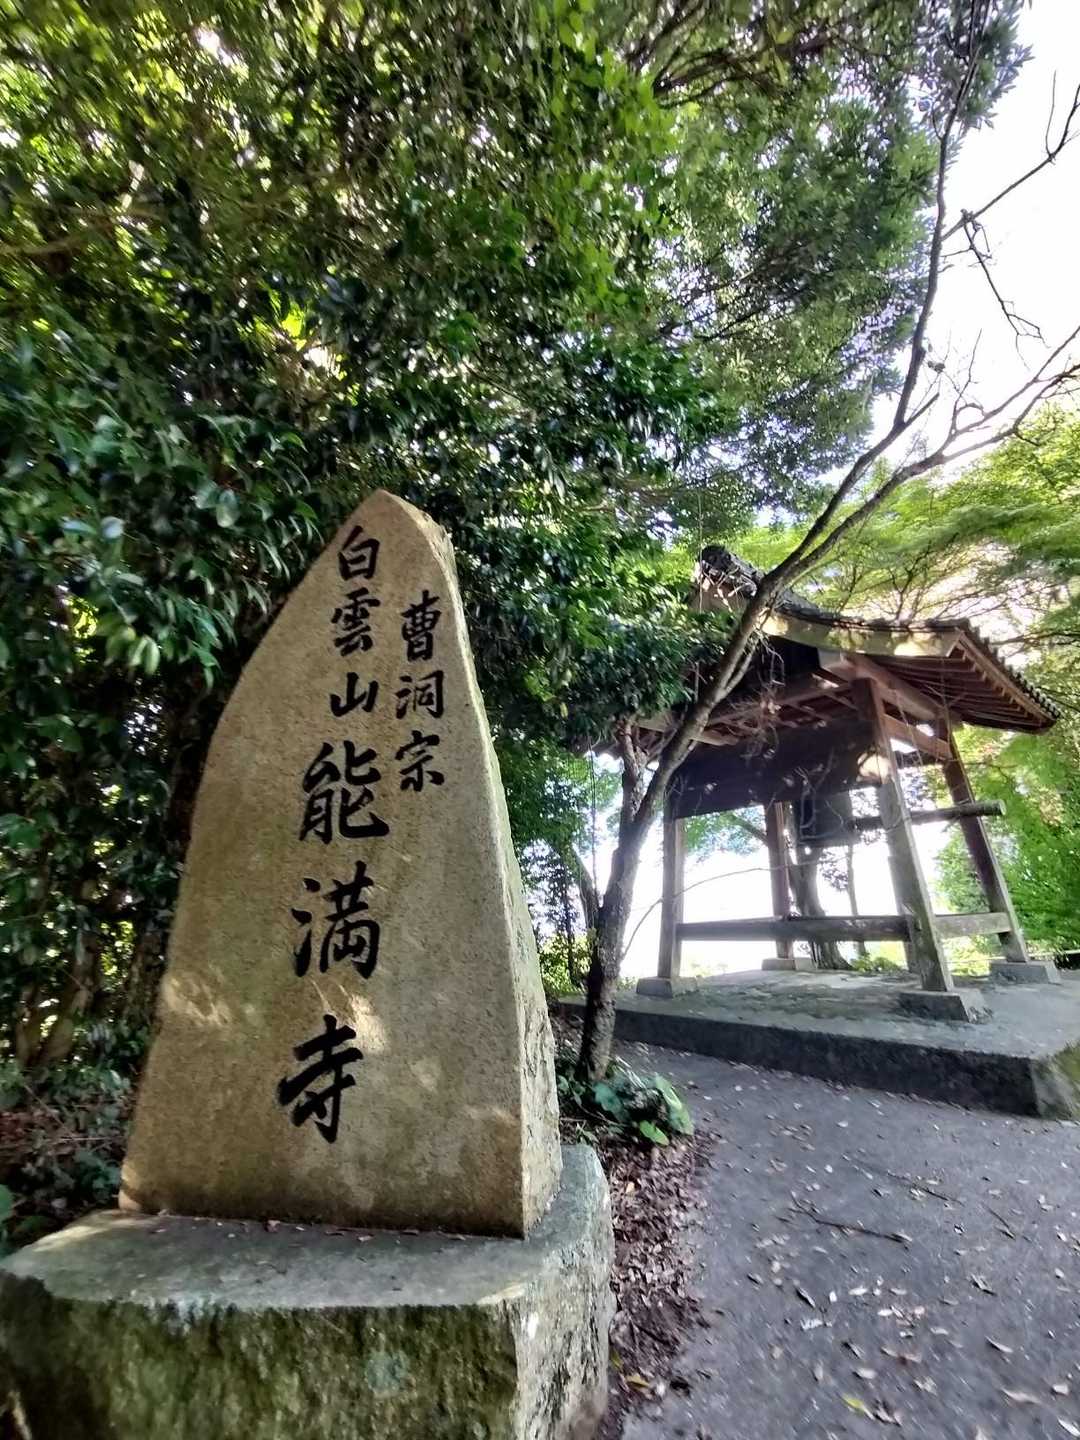 曹洞宗
白雲山能満寺